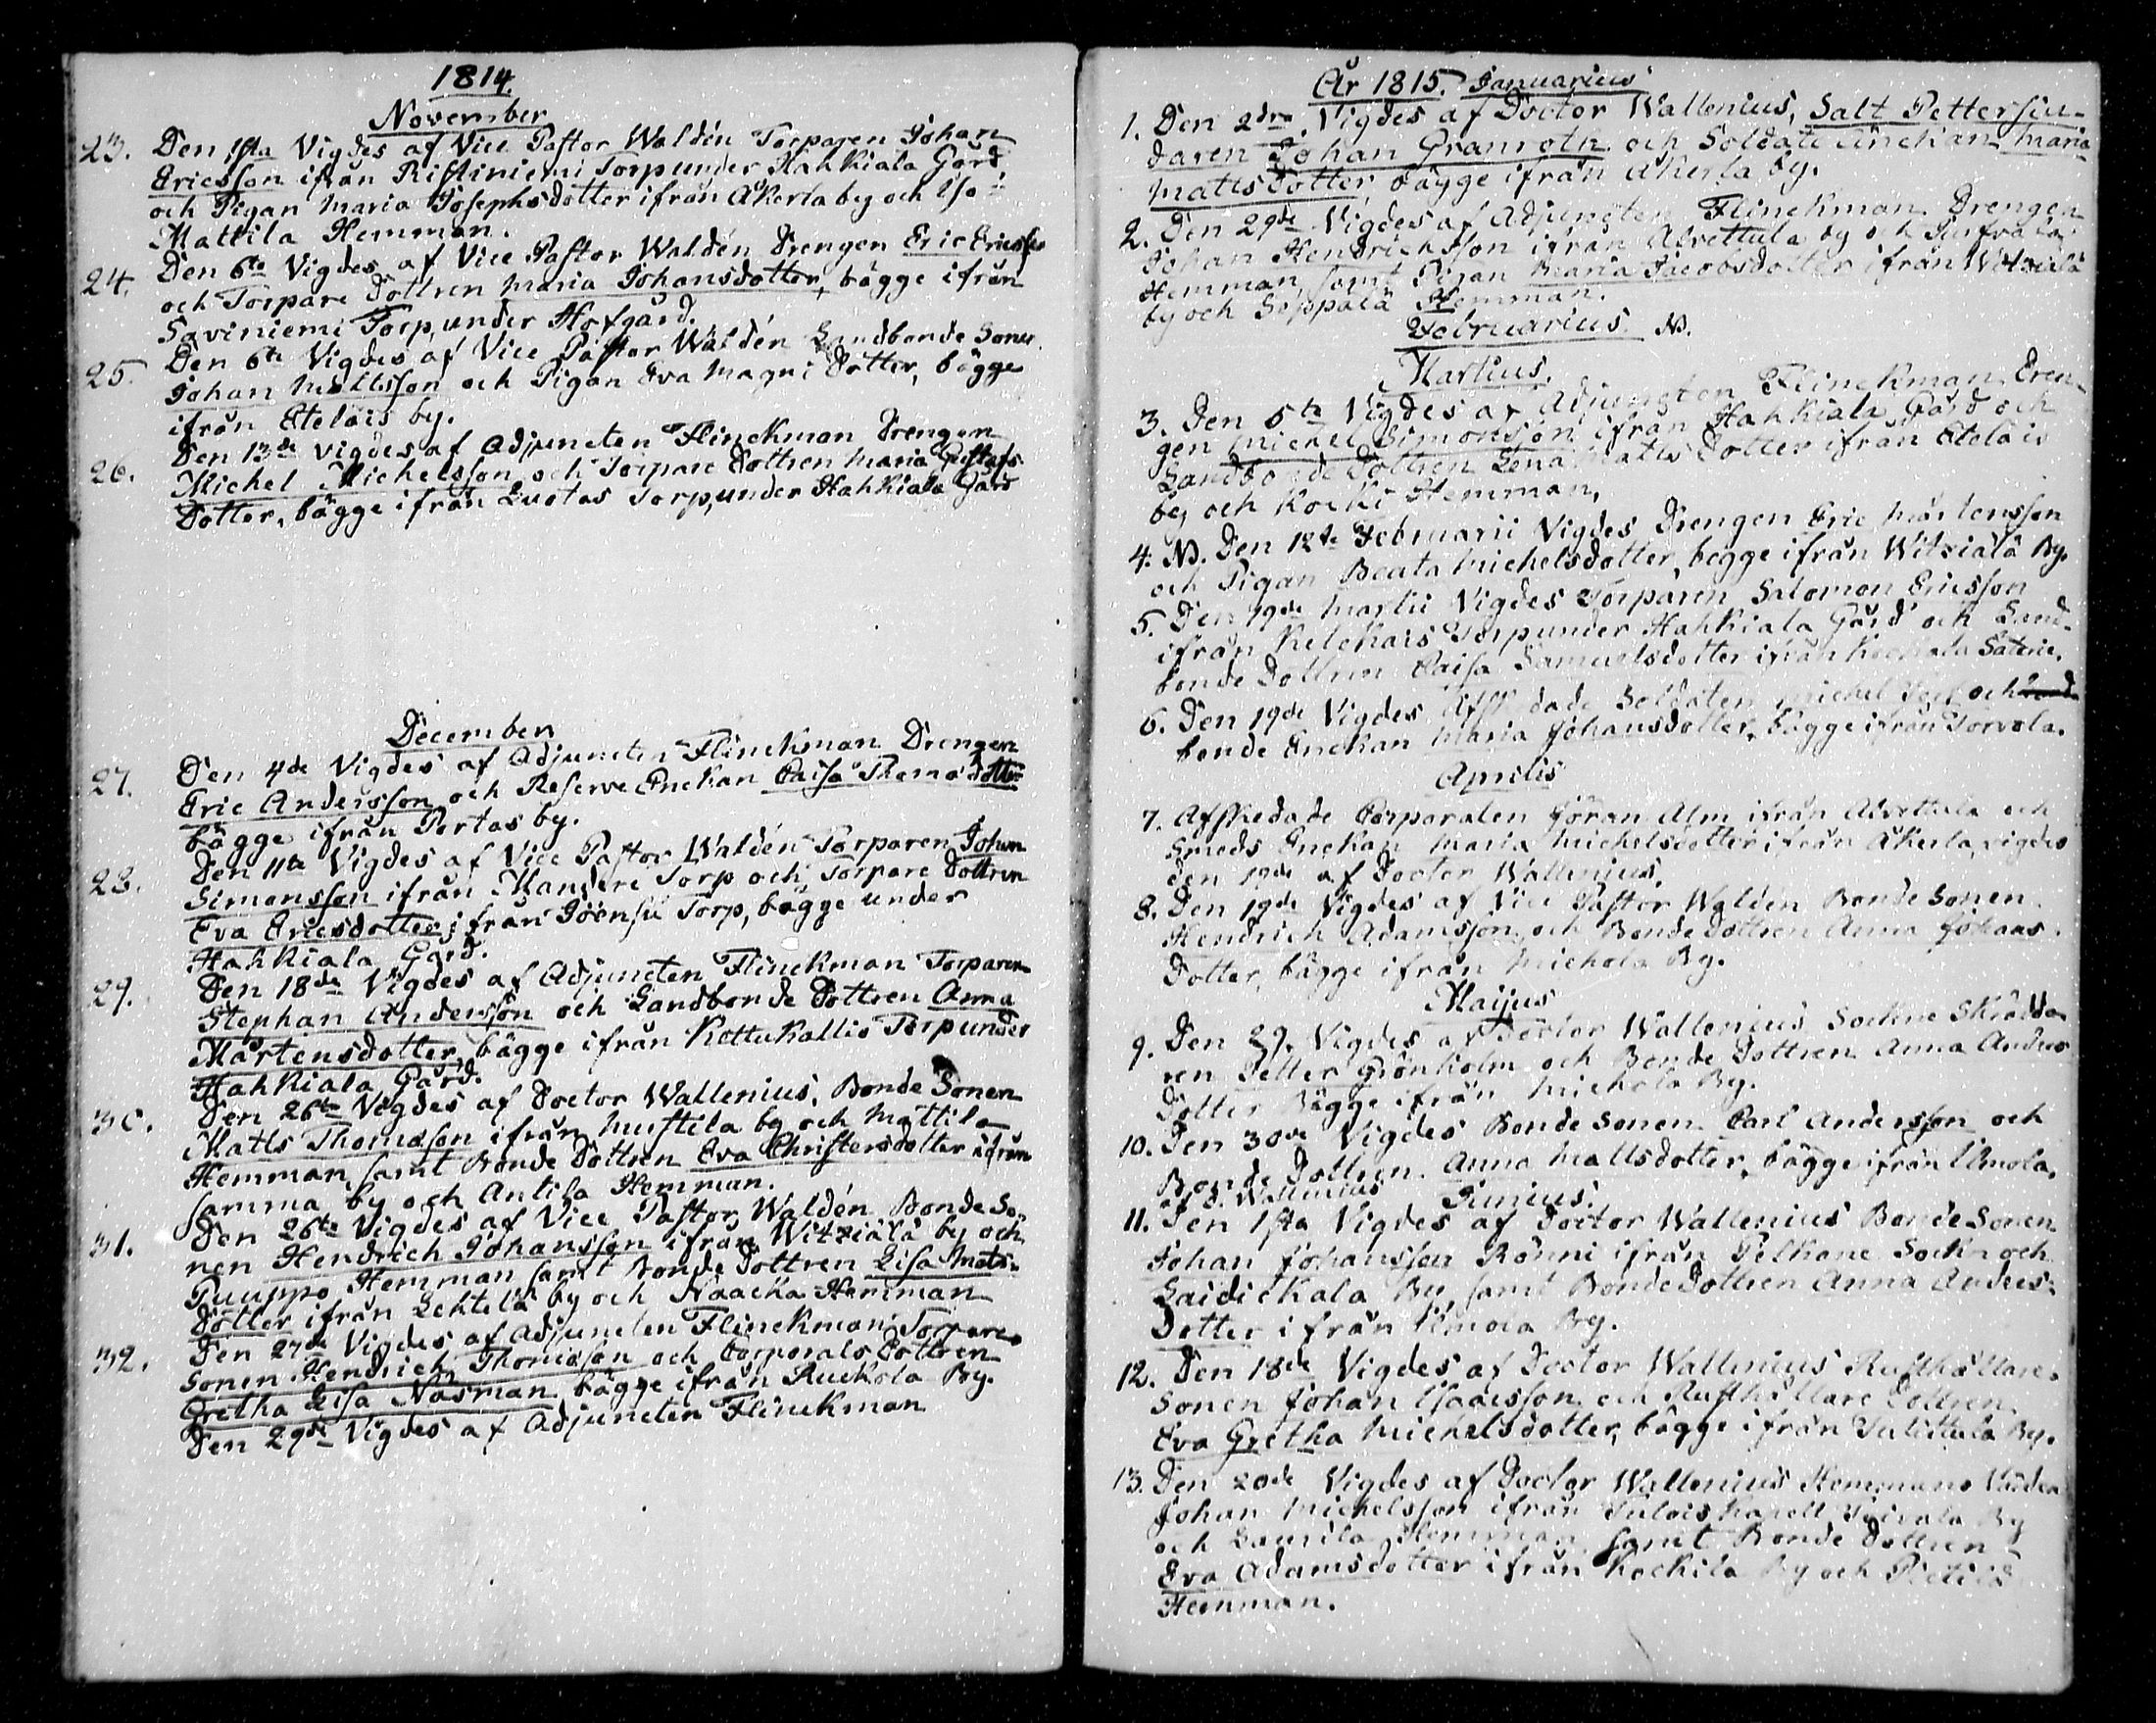 1814.
November
23. Den 1sta Vigdes af Vice Pastor Waldén Torparen Johan
Ericsson ifrån Ristiniemi Torp under Hahkiala Gård
och Pigan Maria Josephsdotter ifrån Åkerla by och Iso
Mattila Hemman.
24. Den 6te Vigdes af Vice Pastor Waldén Drengen Eric Ericsson
och Torpare Dottren Maria Johansdotter, bägge ifrån
Saviniemi Torp, under Hofgård.
25. Den 6te Vigdes af Vice Pastor Waldén Landbonde Sonen
Johan Mattsson och Pigan Eva Magni Dotter, bägge
ifrån Eteläis by.
26. Den 13de Vigdes af Adjuncten Flinckman Drengen
Michel Michelsson och Torpare Dottren Maria Gustafs
Dotter, bägge ifrån Luotas Torp, under Hahkiala Gård
December
27. Den 4de Vigdes af Adjuncten Flinckman Drengen
Eric Andersson och Reserve Enckan Caisa Thomæ Dotter
bägge ifrån Portas by.
28. Den 11te Vigdes af Vice Pastor Waldén Torparen Johan
Simonsson ifrån Mandere Torp och Torpare Dottren
Eva Ericsdotter ifrån Joensu Torp, bägge under
Hahkiala Gård.
29. Den 18de Vigdes af Adjuncten Flinckman Torparen
Stephan Andersson och Landbonde Dottren Anna
Mårtensdotter, bägge ifrån Kettukallio Torp under
Hahkiala Gård.
30. Den 26te Vigdes af Doctor Wallenius, Bonde Sonen
Matts Thomasson ifrån Mustila by och Mattila
Hemman, samt Bonde Dottren Eva Christersdotter ifrån
samma by och Antila Hemman.
31. Den 26te Vigdes af Vice Pastor Waldén Bonde So-
nen Hendrich Johansson ifrån Witziälä by och
Puuppo Hemman samt Bonde Dottren Lisa Mats-
Dotter ifrån Lehtilä by och Naacka Hemman
32. Den 27de Vigdes af Adjuncten Flinckman Torpare
Sonen Hendrich Thomasson och Corporals Dottren
Gretha Lisa Nosman bägge ifrån Ruckola By.
Den 29de Vigdes af Adjuncten Flinckman
År 1815. Januarius
1. Den 2dra Vigdes af Doctor Wallenius, Salt Petter Siu-
daren Johan Granroth och Soldate Enckan Maria
Mattsdotter, bägge ifrån Åkerla by.
2. Den 29de Vigdes af Adjuncten Flinckman Drengen
Johan Hendrichsson ifrån Alvettula by och
Hemman, samt Pigan Maria Jacobsdotter ifrån Witziälä
by och Seppälä Hemman.
Februarius N.
Martius.
3. Den 5te Vigdes af Adjuncten Flinckman Dren-
gen Michel Simonsson ifrån Hahkiala Gård och
Landbonde Dottren Lena Matts Dotter ifrån Eteläis
by och Kocki Hemman,
4. N. Den 12te Februarii Vigdes Drengen Eric Mårtensson
och Pigan Beata Michelsdotter, begge ifrån Witziälä By.
5. Den 19de Martii Vigdes Torparen Salomon Ericsson
ifrån Kelckais Torp under Hahkiala Gård och Land-
bonde Dottren Caisa Samuelsdotter ifrån Kockala Säterie.
6. Den 19de Vigdes Afskedade Soldaten Michel och
bonde Enckan Maria Johansdotter, bägge ifrån Torvola.
Aprilis
7. Afskedade Corporalen Jöran Alm ifrån Alvettula och
Smeds Enckan Maria Michelsdotter ifrån Åkerla, vigdes
den 19de af Doctor Wallenius.
8. Den 19de Vigdes af Vice Pastor Waldén Bonde Sonen
Hendrich Adamsson och Bonde Dottren Anna Johans-
Dotter, bägge ifrån Mickola By.
Maijus
9. Den 29. Vigdes af Doctor Wallenius Sockne Skrädda-
ren Petter Grönholm och Bonde Dottren Anna Anders
Dotter Bägge ifrån Mickola By.
10. Den 30de Vigdes Bonde Sonen Carl Andersson och
Bonde Dottren Anna Mattsdotter, bägge ifrån Ilmola,
af D. Wallenius
Junius.
11. Den 1sta Vigdes af Doctor Wallenius Bonde Sonen
Johan Johansson Rönni ifrån Pelkäne Sockn och
Laidickala By, samt Bonde Dottren Anna Anders-
Dotter ifrån Ilmola By.
12. Den 18de Vigdes af Doctor Wallenius Rusthållare
Sonen Johan Isacsson och Rusthållare Dottren
Eva Gretha Michelsdotter, bägge ifrån Sulittula By.
13. Den 20de Vigdes af Doctor Wallenius Hemmans Vården
Johan Michelsson ifrån Tulois Kapell By
och Laurila Hemman, samt Bonde Dottren
Eva Adamsdotter ifrån Kockila By och Pietilä
Hemman.